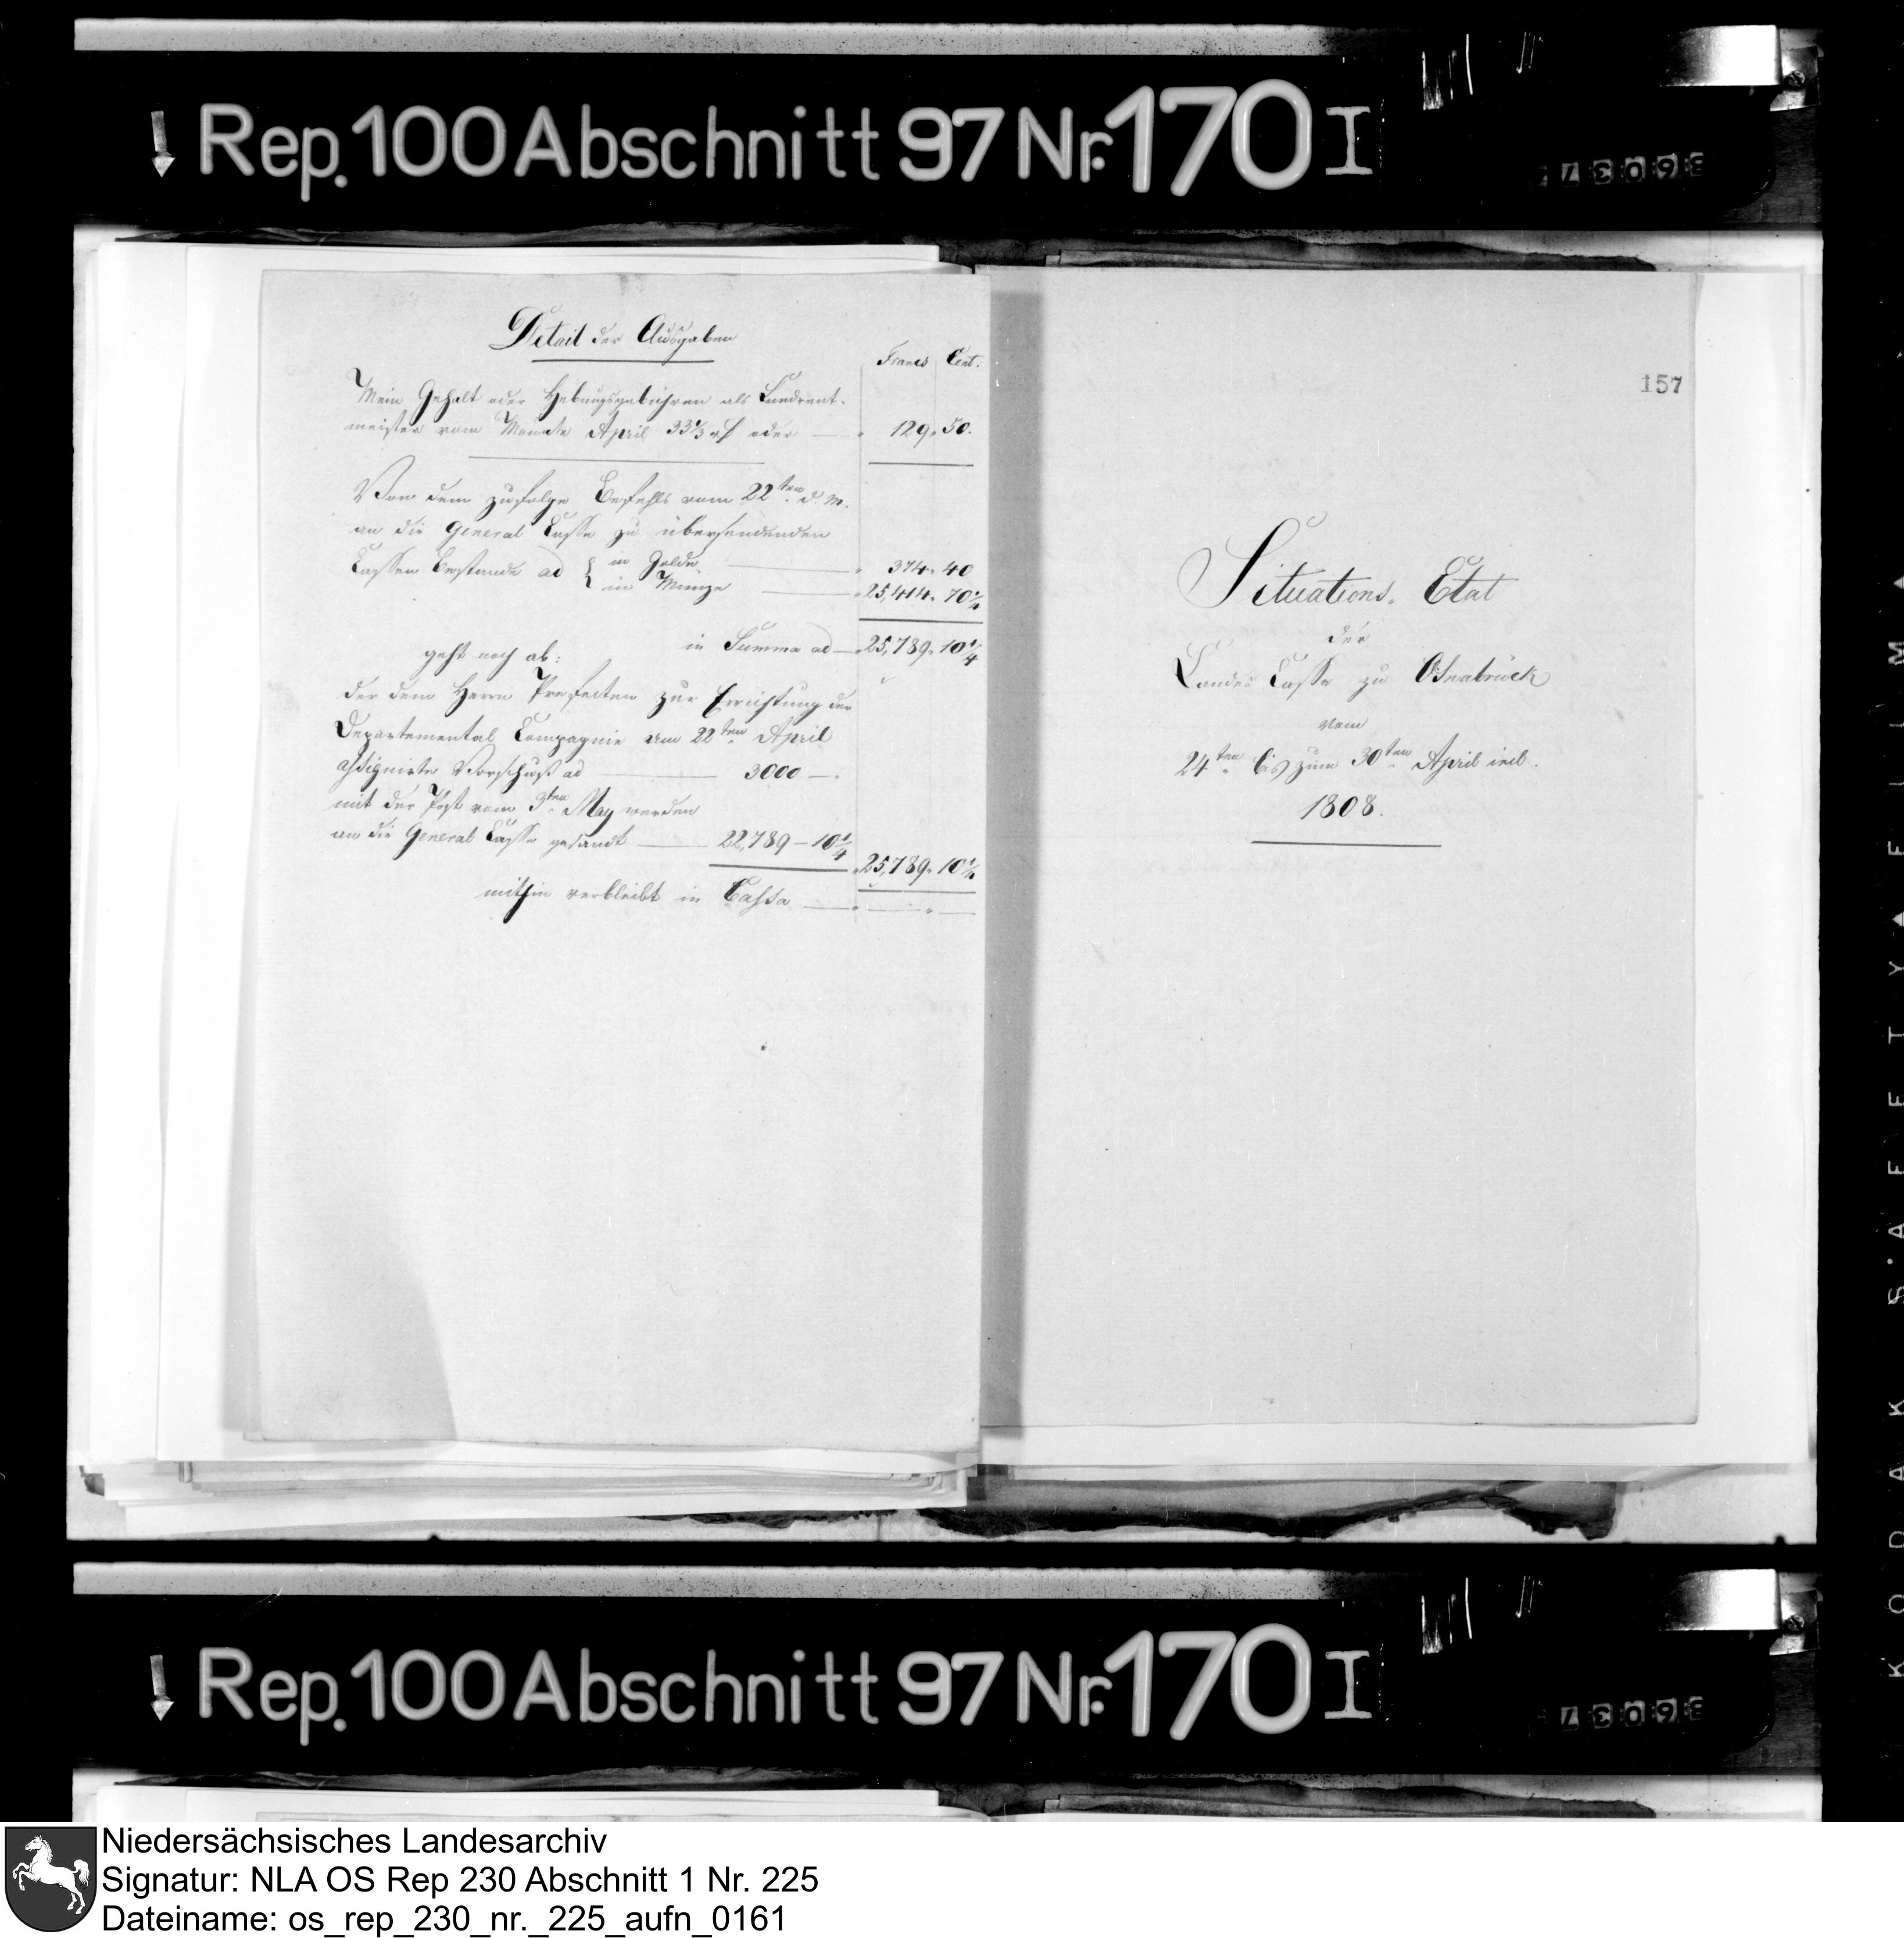 Rep. 100 Abschnitt 97 Nr. 170 I
36037
Detail der Ausgaben
Francs Cent.
Mein Gehalt oder Hebungsgebühren als Landrent-
meister vom Monate April 33 1/3 rf oder — 129. 50.
Von dem zufolge Befehls vom 22ten d. M.
an die General Casse zu übersendenden
Cassen Bestande ad { in Golde — 374. 40
in Münze — 25,414. 70 1/4
in Summa ad — 25,789. 10 1/4
geht noch ab:
der dem Herrn Prefecten zur Errichtung der
Departemental Compagnie am 22ten April
assignirte Vorschuß ad — 3000 —.
mit der Post vom 3ten May werden
an die General Casse gesandt — 22,789 — 10 1/4
25,789. 10 1/4
mithin verbleibt in Cassa — — . —
157
Situations. Etat
der
Landes Casse zu Osnabrück
vom
24ten bis zum 30ten April incl.
1808.
Rep. 100 Abschnitt 97 Nr. 170 I
36037
KODAK S'AFETY FILM
Niedersächsisches Landesarchiv
Signatur: NLA OS Rep 230 Abschnitt 1 Nr. 225
Dateiname: os_rep_230_nr._225_aufn_0161